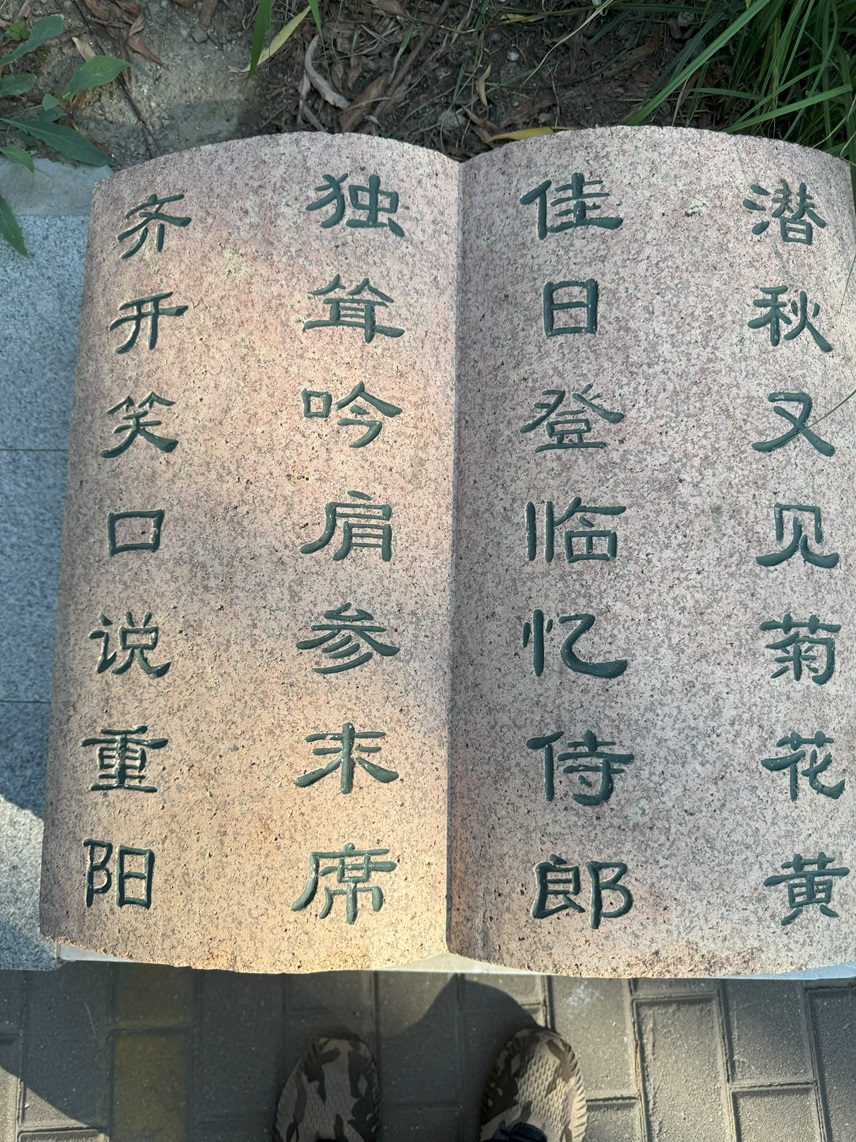 潜秋又见菊花黄
佳日登临忆侍郎
独耸吟肩参末席
齐开笑口说重阳